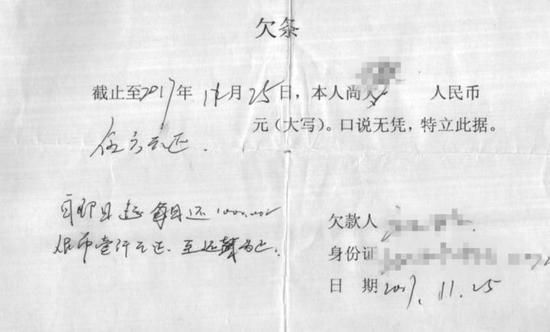 欠条
截止至2017年11月25日，本人尚欠 人民币
伍万元正. 元（大写）。口说无凭，特立此据。
自即日起 每月还1000.00
人民币壹仟元正、至还清为止
欠款人
身份证
日 期 2017.11.25